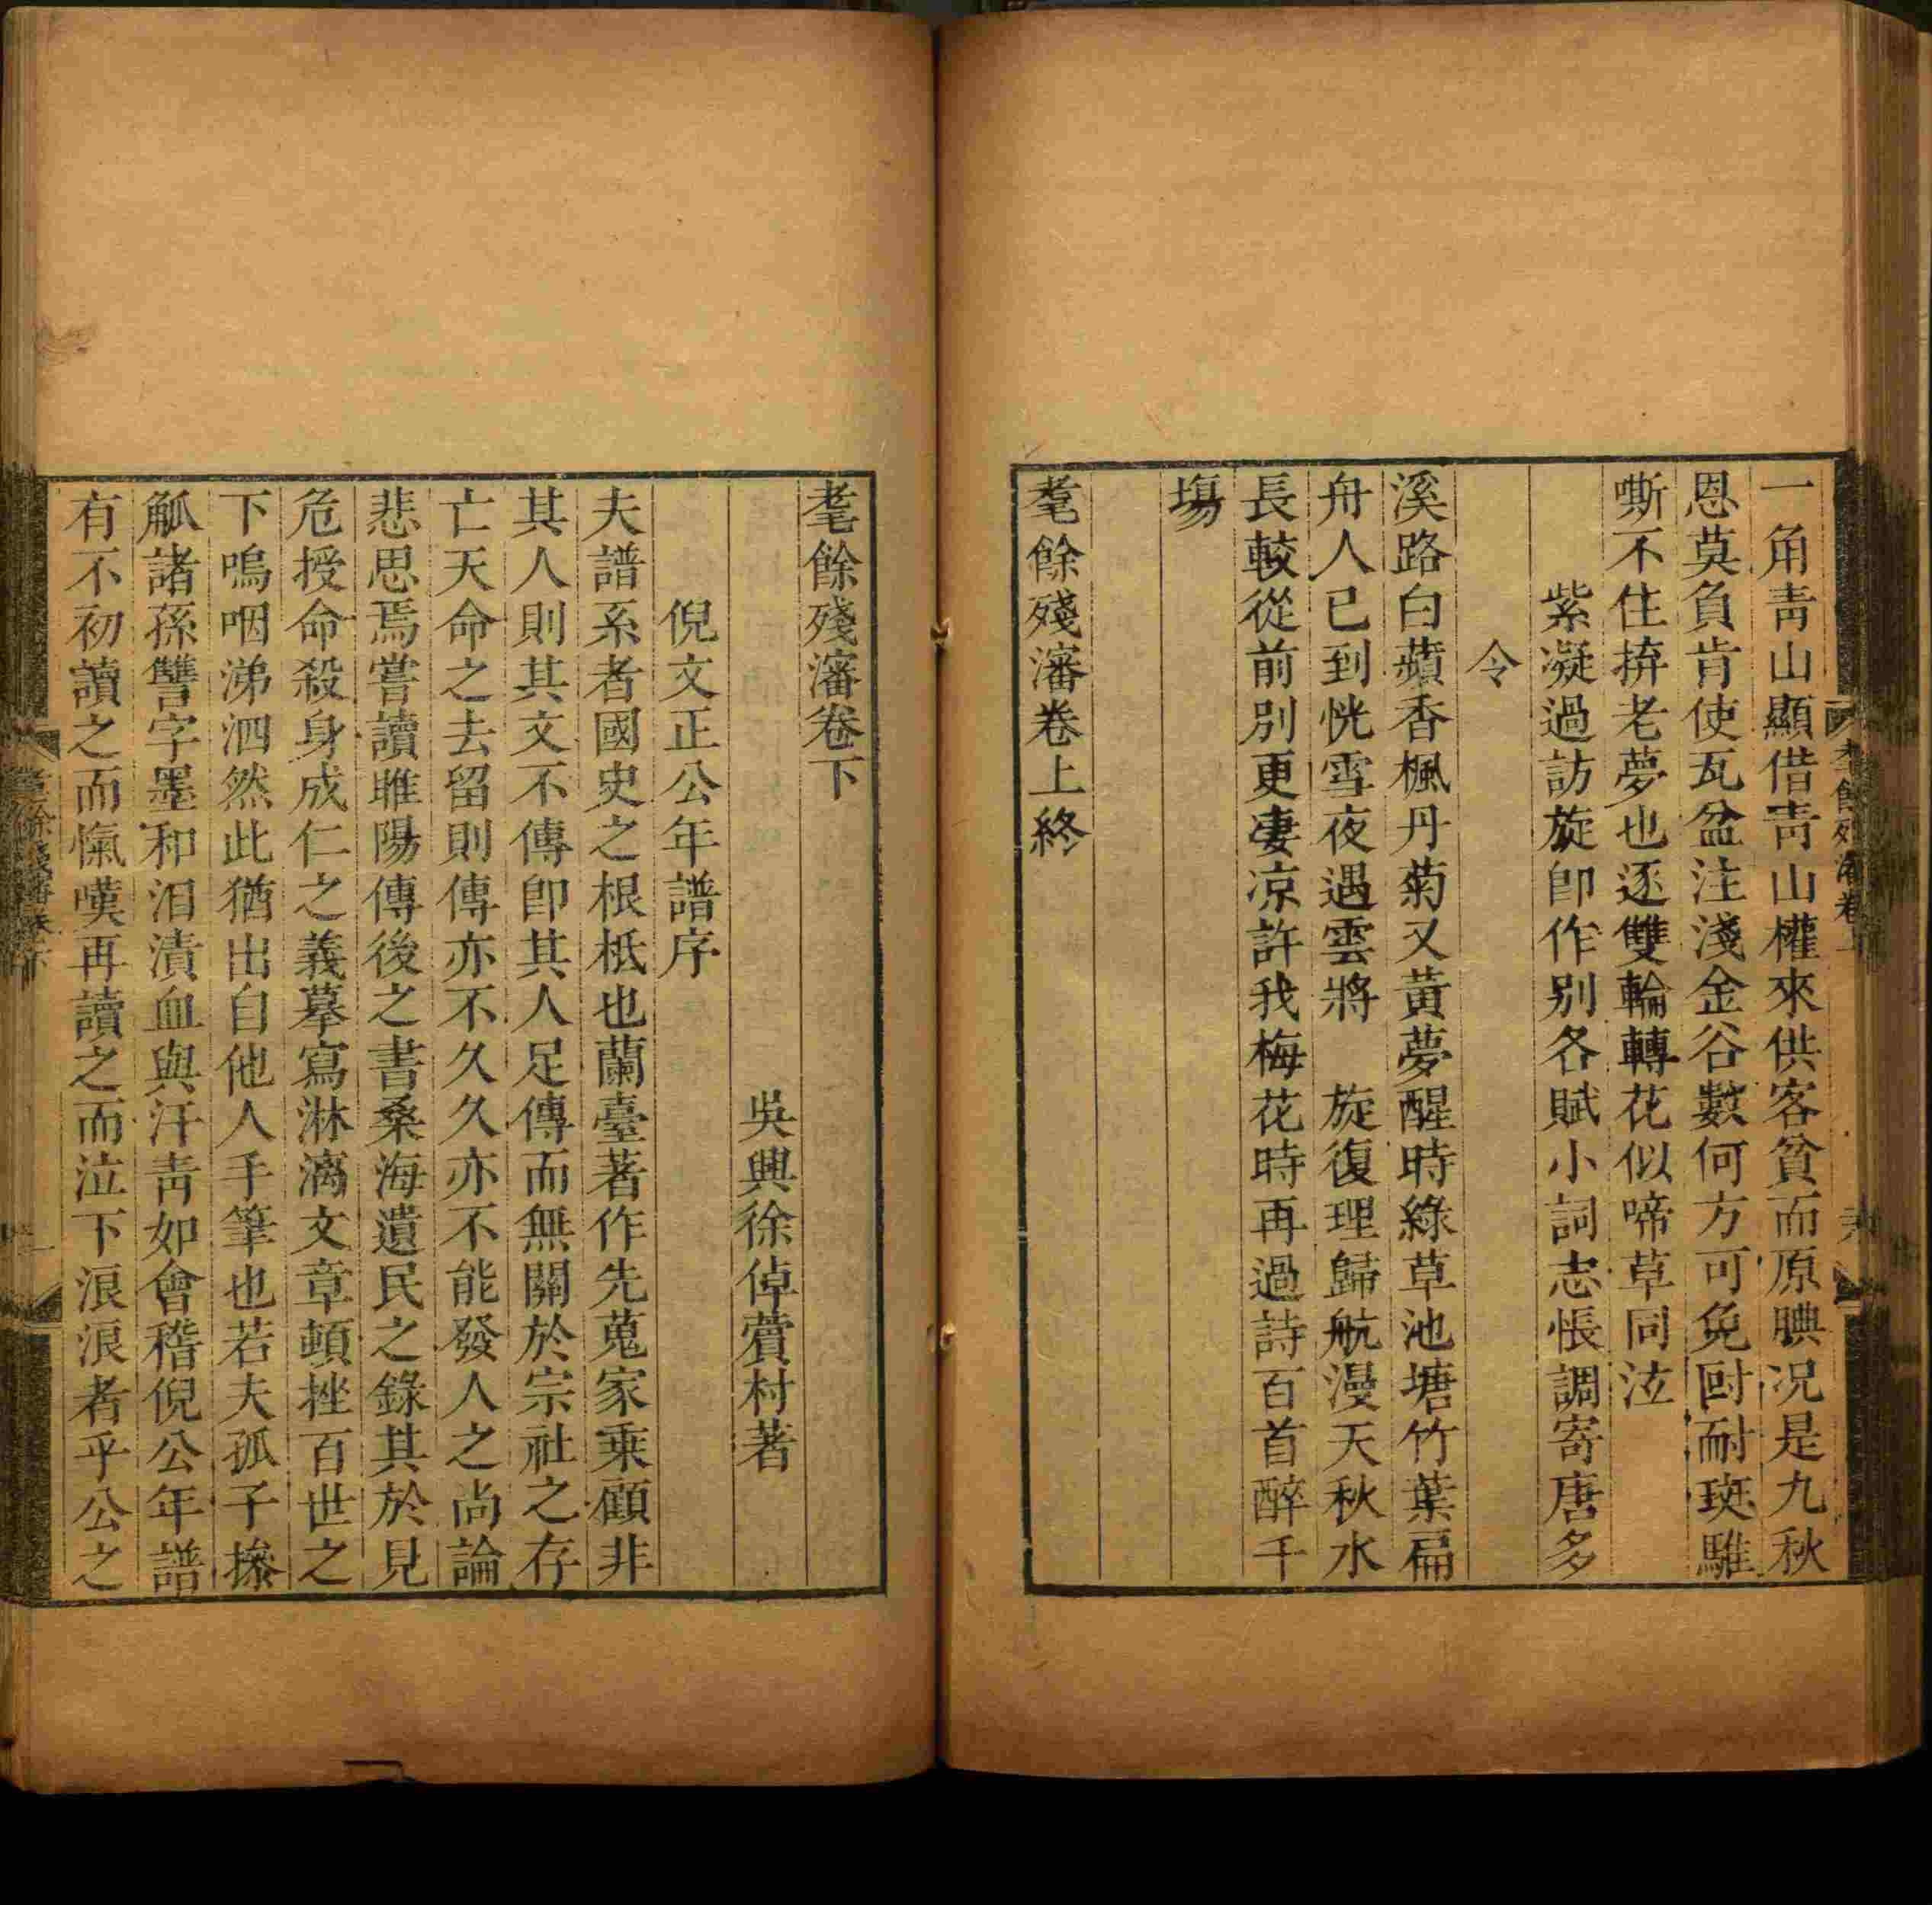 一角青山顯借青山權來供客貧而原腆况是九秋
恩莫負肯使瓦盆注淺金谷數何方可免𡇌耐斑騅
嘶不住拚老夢也逐雙輪轉花似啼草同泫
紫凝過訪旋即作别各賦小詞志悵調寄唐多
令
溪路白蘋香楓丹菊又黃夢醒時綠草池塘竹葉扁
舟人已到恍雪夜遇雲將　旋復理歸航漫天秋水
長較從前別更凄凉許我梅花時再過詩百首醉千
塲
耄餘殘瀋卷上終
耄餘殘瀋卷下
吳興徐倬蘋村著
倪文正公年譜序
夫譜系者國史之根柢也蘭臺著作先蒐家乘顧非
其人則其文不傳卽其人足傳而無關於宗社之存
亡天命之去留則傳亦不久久亦不能發人之尚論
悲思焉嘗讀睢陽傳後之書桑海遺民之錄其於見
危授命殺身成仁之義摹寫淋漓文章頓挫百世之
下嗚咽涕泗然此猶出自他人手筆也若夫孤子摻
觚諸孫讐字墨和泪漬血與汗青如會稽倪公年譜
有不初讀之而愾嘆再讀之而泣下浪浪者乎公之
耄餘殘瀋卷下